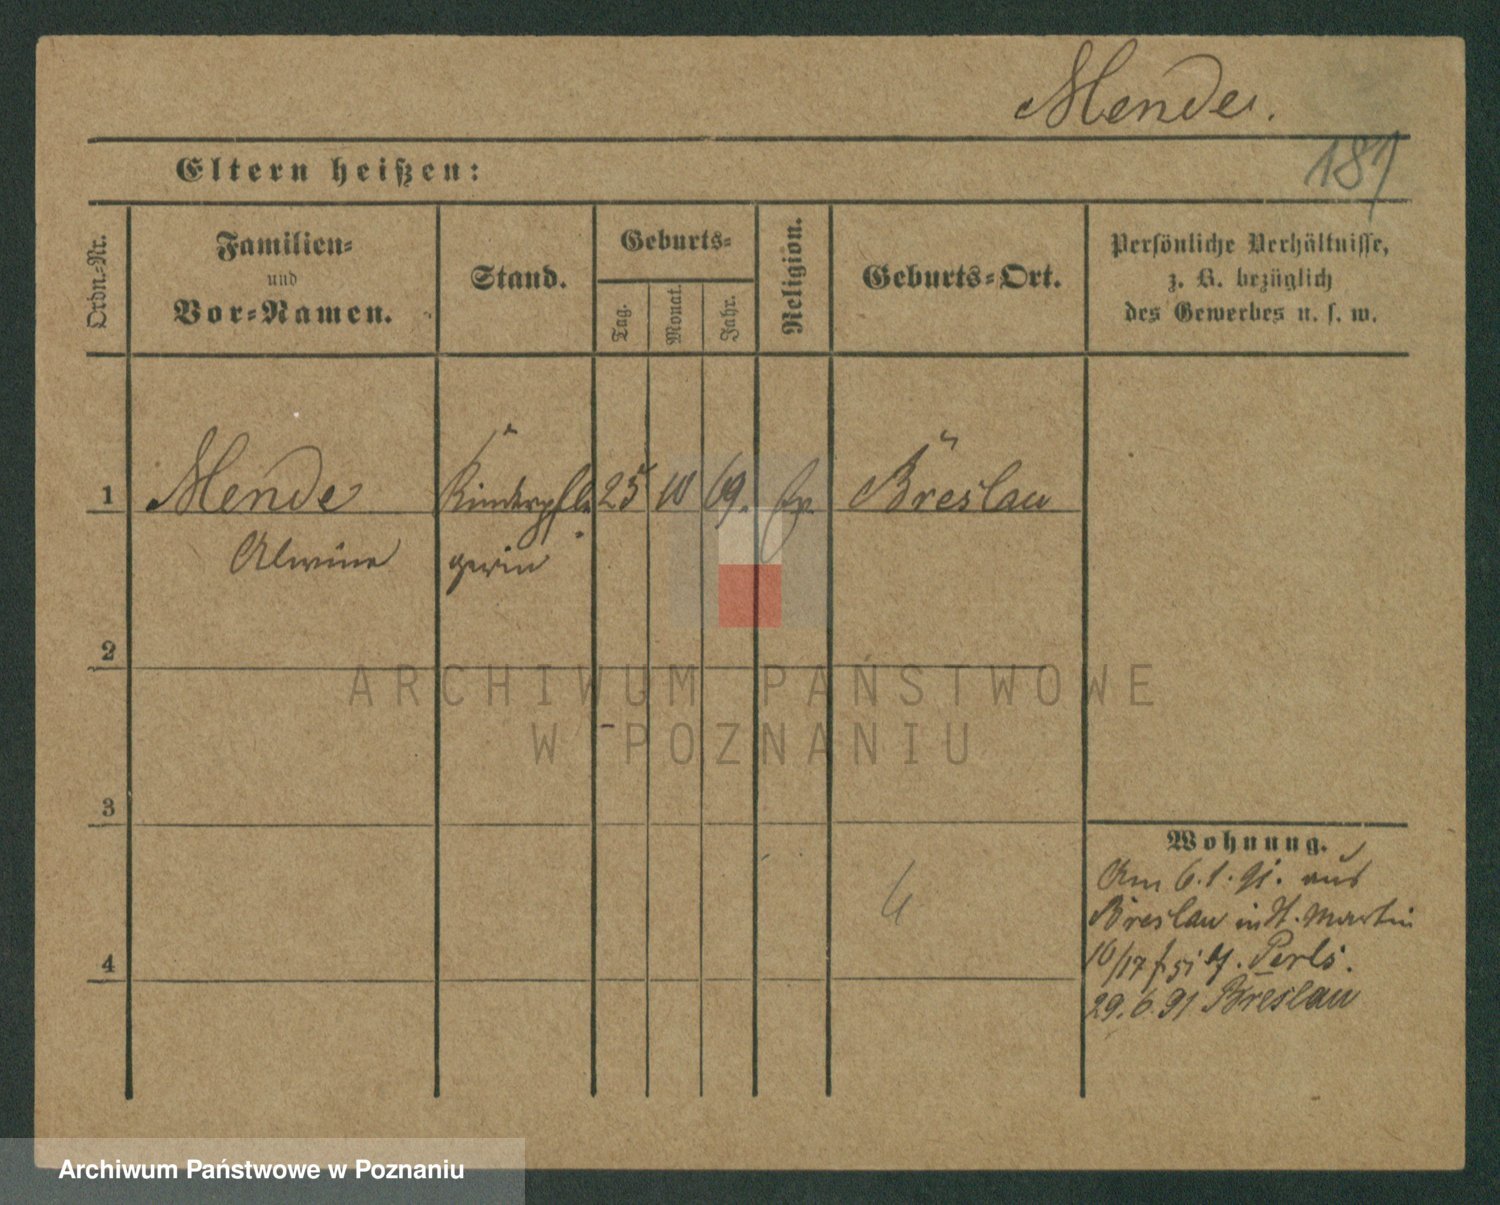 Mende.
187
Eltern heißen:
Ordn=Nr.
Familien=
und
Vor=Namen.
Stand.
Geburts=
Tag.
Monat.
Jahr.
Religion.
Geburts=Ort.
Persönliche Verhältnisse,
z. B. bezüglich
des Gewerbes u. s. w.
1
Mende Kinderpfle 25 10 69. Breslau
Alwine gerin
2
ARCHIWUM PAŃSTWOWE
W POZNANIU
3
Wohnung.
Am 6.1.91. aus
Breslau in St. Martin
16/17 Perls.
4
29.6.91 Breslau
Archiwum Państwowe w Poznaniu